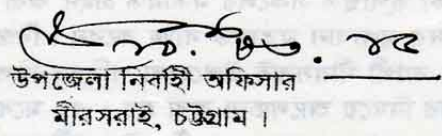 উপজেলা নির্বাহী অফিসার
মীরসরাই, চট্টগ্রাম ।